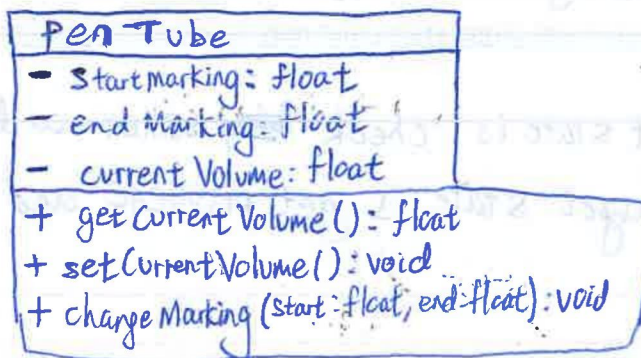 Pen Tube
- Startmarking: float
- end Marking: float
- current Volume: float
+ get Current Volume(): float
+ set Current Volume(): void
+ change Marking (start: float, end: float): void